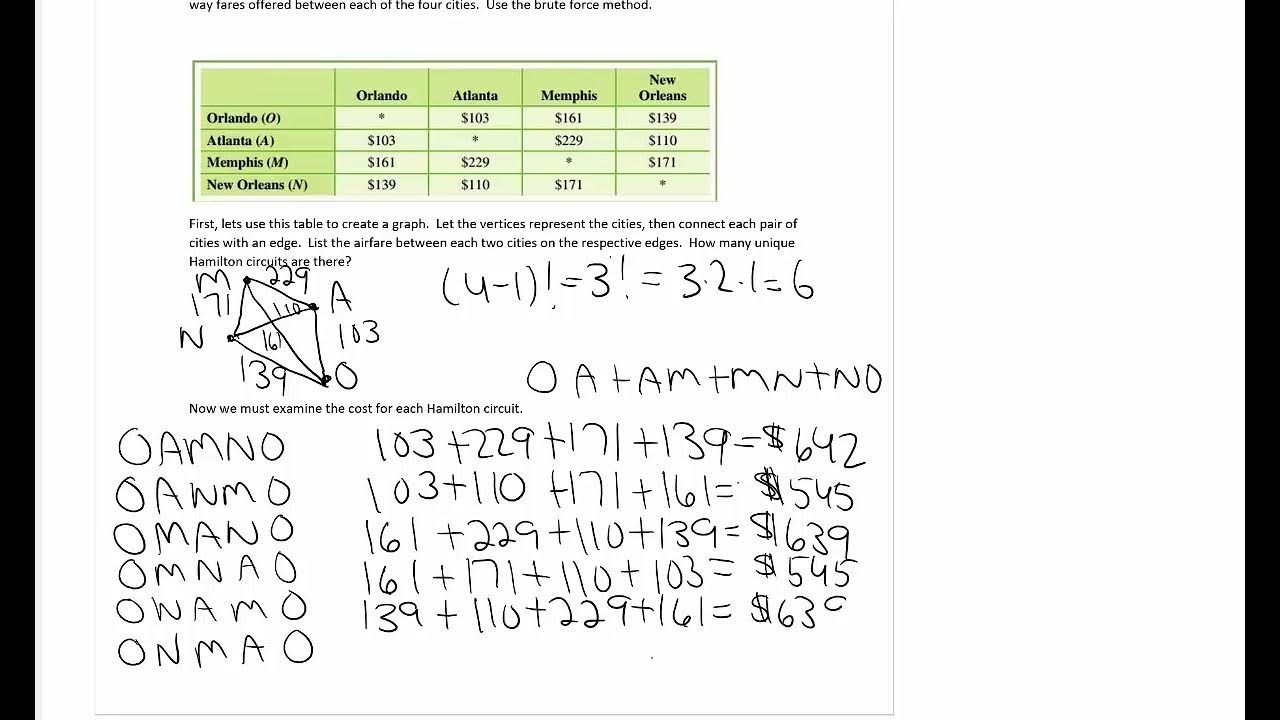 way fares offered between each of the four cities. Use the brute force method.
Orlando Atlanta Memphis New Orleans
Orlando (O) * $103 $161 $139
Atlanta (A) $103 * $229 $110
Memphis (M) $161 $229 * $171
New Orleans (N) $139 $110 $171 *
First, lets use this table to create a graph. Let the vertices represent the cities, then connect each pair of
cities with an edge. List the airfare between each two cities on the respective edges. How many unique
Hamilton circuits are there?
M 229
171 110 A
N 161 103
139 O
(4-1)! = 3! = 3·2·1 = 6
OA+AM+MN+NO
Now we must examine the cost for each Hamilton circuit.
OAMNO 103+229+171+139=$642
OANMO 103+110+171+161=$545
OMANO 161+229+110+139=$639
OMNAO 161+171+110+103=$545
ONAMO 139+110+229+161=$639
ONMAO